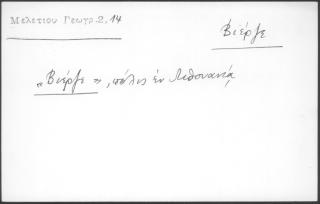 Μελετίου Γεωγρ.2,14
Βιέρζε
"Βιέρζε", πόλις ἐν Λιθουανίᾳ